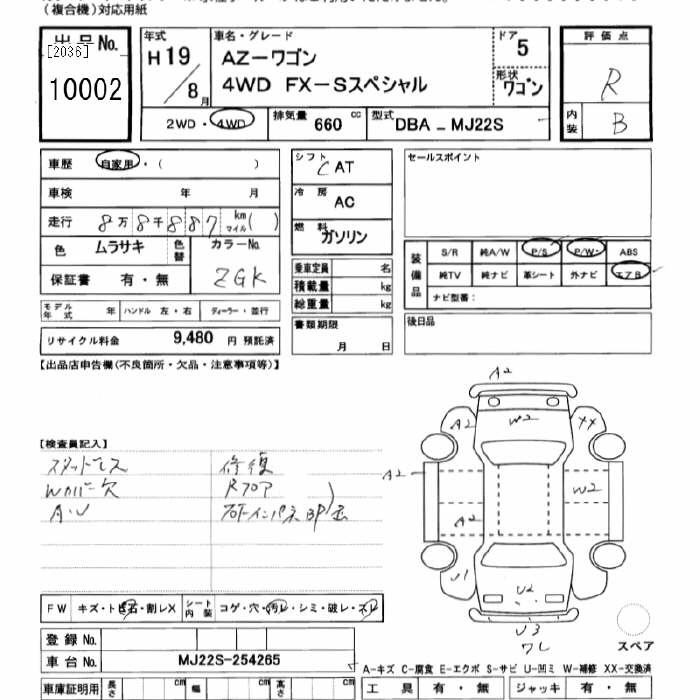 (複合機)対応用紙
出品No.
[2036]
10002
年式
H19/8月
車名・グレード
AZ−ワゴン
4WD FX−Sスペシャル
ドア
5
形状
ワゴン
評価点
R
内装
B
2WD・4WD
排気量 660 cc
型式 DBA - MJ22S
車歴 自家用・( )
車検 年 月
走行 8万8千887 km マイル( )
色 ムラサキ 色替
カラーNo.
ZGK
保証書 有・無
モデル年式 年 ハンドル 左・右 ディーラー・並行
リサイクル料金 9,480 円 預託済
シフト
CAT
冷房
AC
燃料
ガソリン
乗車定員 名
積載量 kg
総重量 kg
書類期限
月 日
セールスポイント
装備品
S/R 純A/W P/S P/W ABS
純TV 純ナビ 革シート 外ナビ エアB
ナビ型番:
後日品
[出品店申告欄(不良箇所・欠品・注意事項等)]
[検査員記入]
スタッドレス
Wカバー欠
A・U
修復
Rフロア
A2
A2
W2
XX
A2
W2
A2
U1
U2
U3
スペア
FW キズ・トビ石・割レX シート内装 コゲ・穴・汚レ・シミ・破レ・スレ
登録No.
車台No. MJ22S-254265
車庫証明用 長さ cm 幅 cm 高さ cm
A−キズ C−腐食 E−エクボ S−サビ U−凹ミ W−補修 XX−交換済
工具 有・無 ジャッキ 有・無